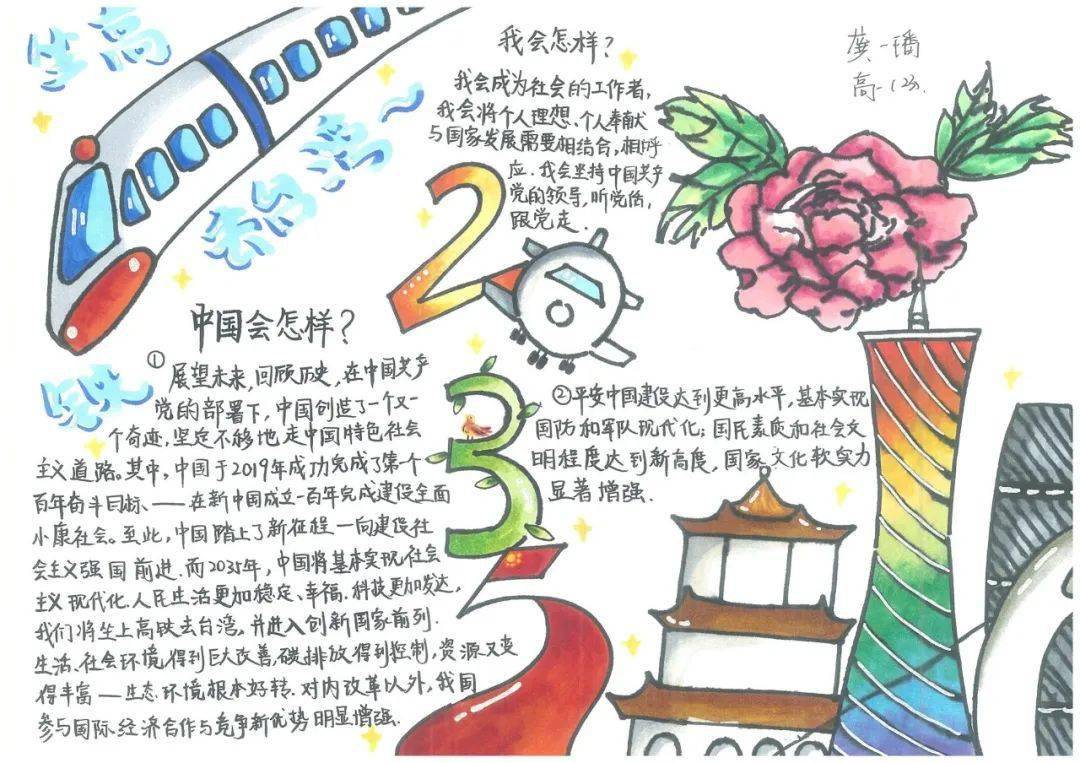 坐高
去台湾~
我会怎样?
我会成为社会的工作者,
我会将个人理想、个人奉献
与国家发展需要相结合,相呼
应.我会坚持中国共产
党的领导,听党话,
跟党走.
龚一璠
高一(23).
2035
中国会怎样?
①展望未来,回顾历史,在中国共产
党的部署下,中国创造了一个又一
个奇迹,坚定不移地走中国特色社会
主义道路。其中,中国于2019年成功完成了第一个
百年奋斗目标、——在新中国成立一百年完成建设全面
小康社会。至此,中国踏上了新征程一向建设社
会主义强国前进.而2035年,中国将基本实现社会
主义现代化.人民生活更加稳定、幸福.科技更加发达,
我们将坐上高铁去台湾,并进入创新国家前列.
生活、社会环境得到巨大改善,碳排放得到控制,资源又变
得丰富——生态环境根本好转.对内改革以外,我国
参与国际经济合作与竞争新优势明显增强.
②平安中国建设达到更高水平,基本实现
国防和军队现代化;国民素质和社会文
明程度达到新高度,国家文化软实力
显著增强.